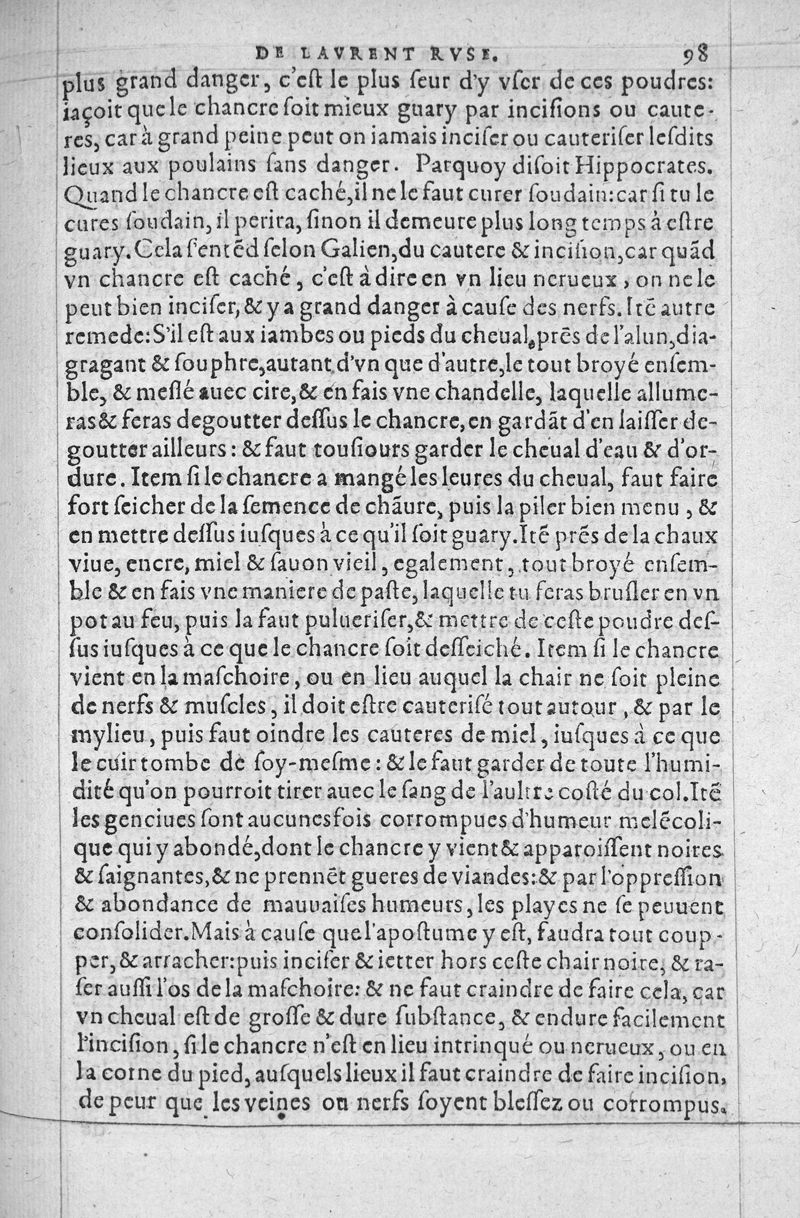 DE LAVRENT RVSE. 98
plus grand danger, c'eſt le plus ſeur d'y vſer de ces poudres:
iaçoit que le chancre ſoit mieux guary par inciſions ou caute-
res, car à grand peine peut on iamais inciſer ou cauteriſer leſdits
lieux aux poulains ſans danger. Parquoy diſoit Hippocrates.
Quand le chancre eſt caché, il ne le faut curer ſoudain: car ſi tu le
cures ſoudain, il perira, ſinon il demeure plus long temps à eſtre
guary. Cela ſ'entẽd ſelon Galien, du cautere & inciſion, car quãd
vn chancre eſt caché, c'eſt à dire en vn lieu nerueux, on ne le
peut bien inciſer, & y a grand danger à cauſe des nerfs. Itẽ autre
remede: S'il eſt aux iambes ou pieds du cheual, prẽs de l'alun, dia-
gragant & ſouphre, autant d'vn que d'autre, le tout broyé enſem-
ble, & meſlé auec cire, & en fais vne chandelle, laquelle allume-
ras & feras degoutter deſſus le chancre, en gardãt d'en laiſſer de-
goutter ailleurs: & faut touſiours garder le cheual d'eau & d'or-
dure. Item ſi le chancre a mangé les leures du cheual, faut faire
fort ſeicher de la ſemence de chãure, puis la piler bien menu, &
en mettre deſſus iuſques à ce qu'il ſoit guary. Itẽ prẽs de la chaux
viue, encre, miel & ſauon vieil, egalement, tout broyé enſem-
ble & en fais vne maniere de paſte, laquelle tu feras bruſler en vn
pot au feu, puis la faut pulueriſer, & mettre de ceſte poudre deſ-
ſus iuſques à ce que le chancre ſoit deſſeiché. Item ſi le chancre
vient en la maſchoire, ou en lieu auquel la chair ne ſoit pleine
de nerfs & muſcles, il doit eſtre cauteriſé tout autour, & par le
mylieu, puis faut oindre les cauteres de miel, iuſques à ce que
le cuir tombe de ſoy-meſme: & le faut garder de toute l'humi-
dité qu'on pourroit tirer auec le ſang de l'aultre coſté du col. Itẽ
les genciues ſont aucunesfois corrompues d'humeur melẽcoli-
que qui y abondé, dont le chancre y vient & apparoiſſent noires
& ſaignantes, & ne prennẽt gueres de viandes: & par l'oppreſſion
& abondance de mauuaiſes humeurs, les playes ne ſe peuuent
conſolider. Mais à cauſe que l'apoſtume y eſt, faudra tout coup-
per, & arracher: puis inciſer & ietter hors ceſte chair noire, & ra-
ſer auſſi l'os de la maſchoire: & ne faut craindre de faire cela, car
vn cheual eſt de groſſe & dure ſubſtance, & endure facilement
l'inciſion, ſi le chancre n'eſt en lieu intrinqué ou nerueux, ou en
la corne du pied, auſquels lieux il faut craindre de faire inciſion,
de peur que les veines ou nerfs ſoyent bleſſez ou corrompus.